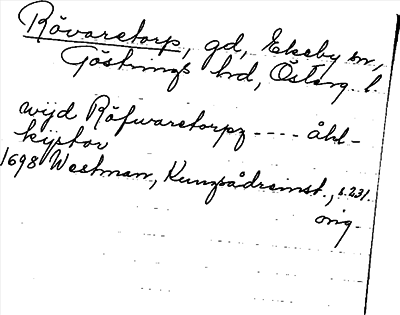 Rövaretorp, gd, Ekeby sn,
Göstrings hrd, Österg. l.
wijd Röfwaretorpz ---- åhl-
kijstor
1698 Westman, Kunzpådremst., s. 231.
orig.